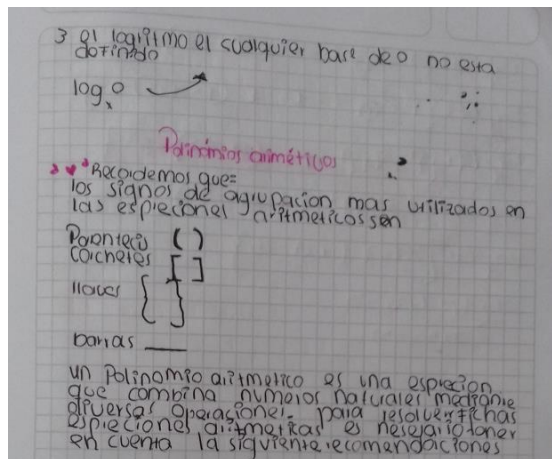 3 el logaritmo el cualquier base de 0 no esta
definido
logₓ0
Polinómios ariméticos
Recordemos que=
los signos de agrupacion mas utilizados en
las espreciones aritmeticos son
Parentecis ( )
Corchetes [ ]
llaves { }
barras —
un Polinomio aritmetico es una esprecion
que combina numeros naturales mediante
diversas operaciones. para resolver fichas
espreciones aritmeticas es nesesario toner
en cuenta la siguiente recomendaciones